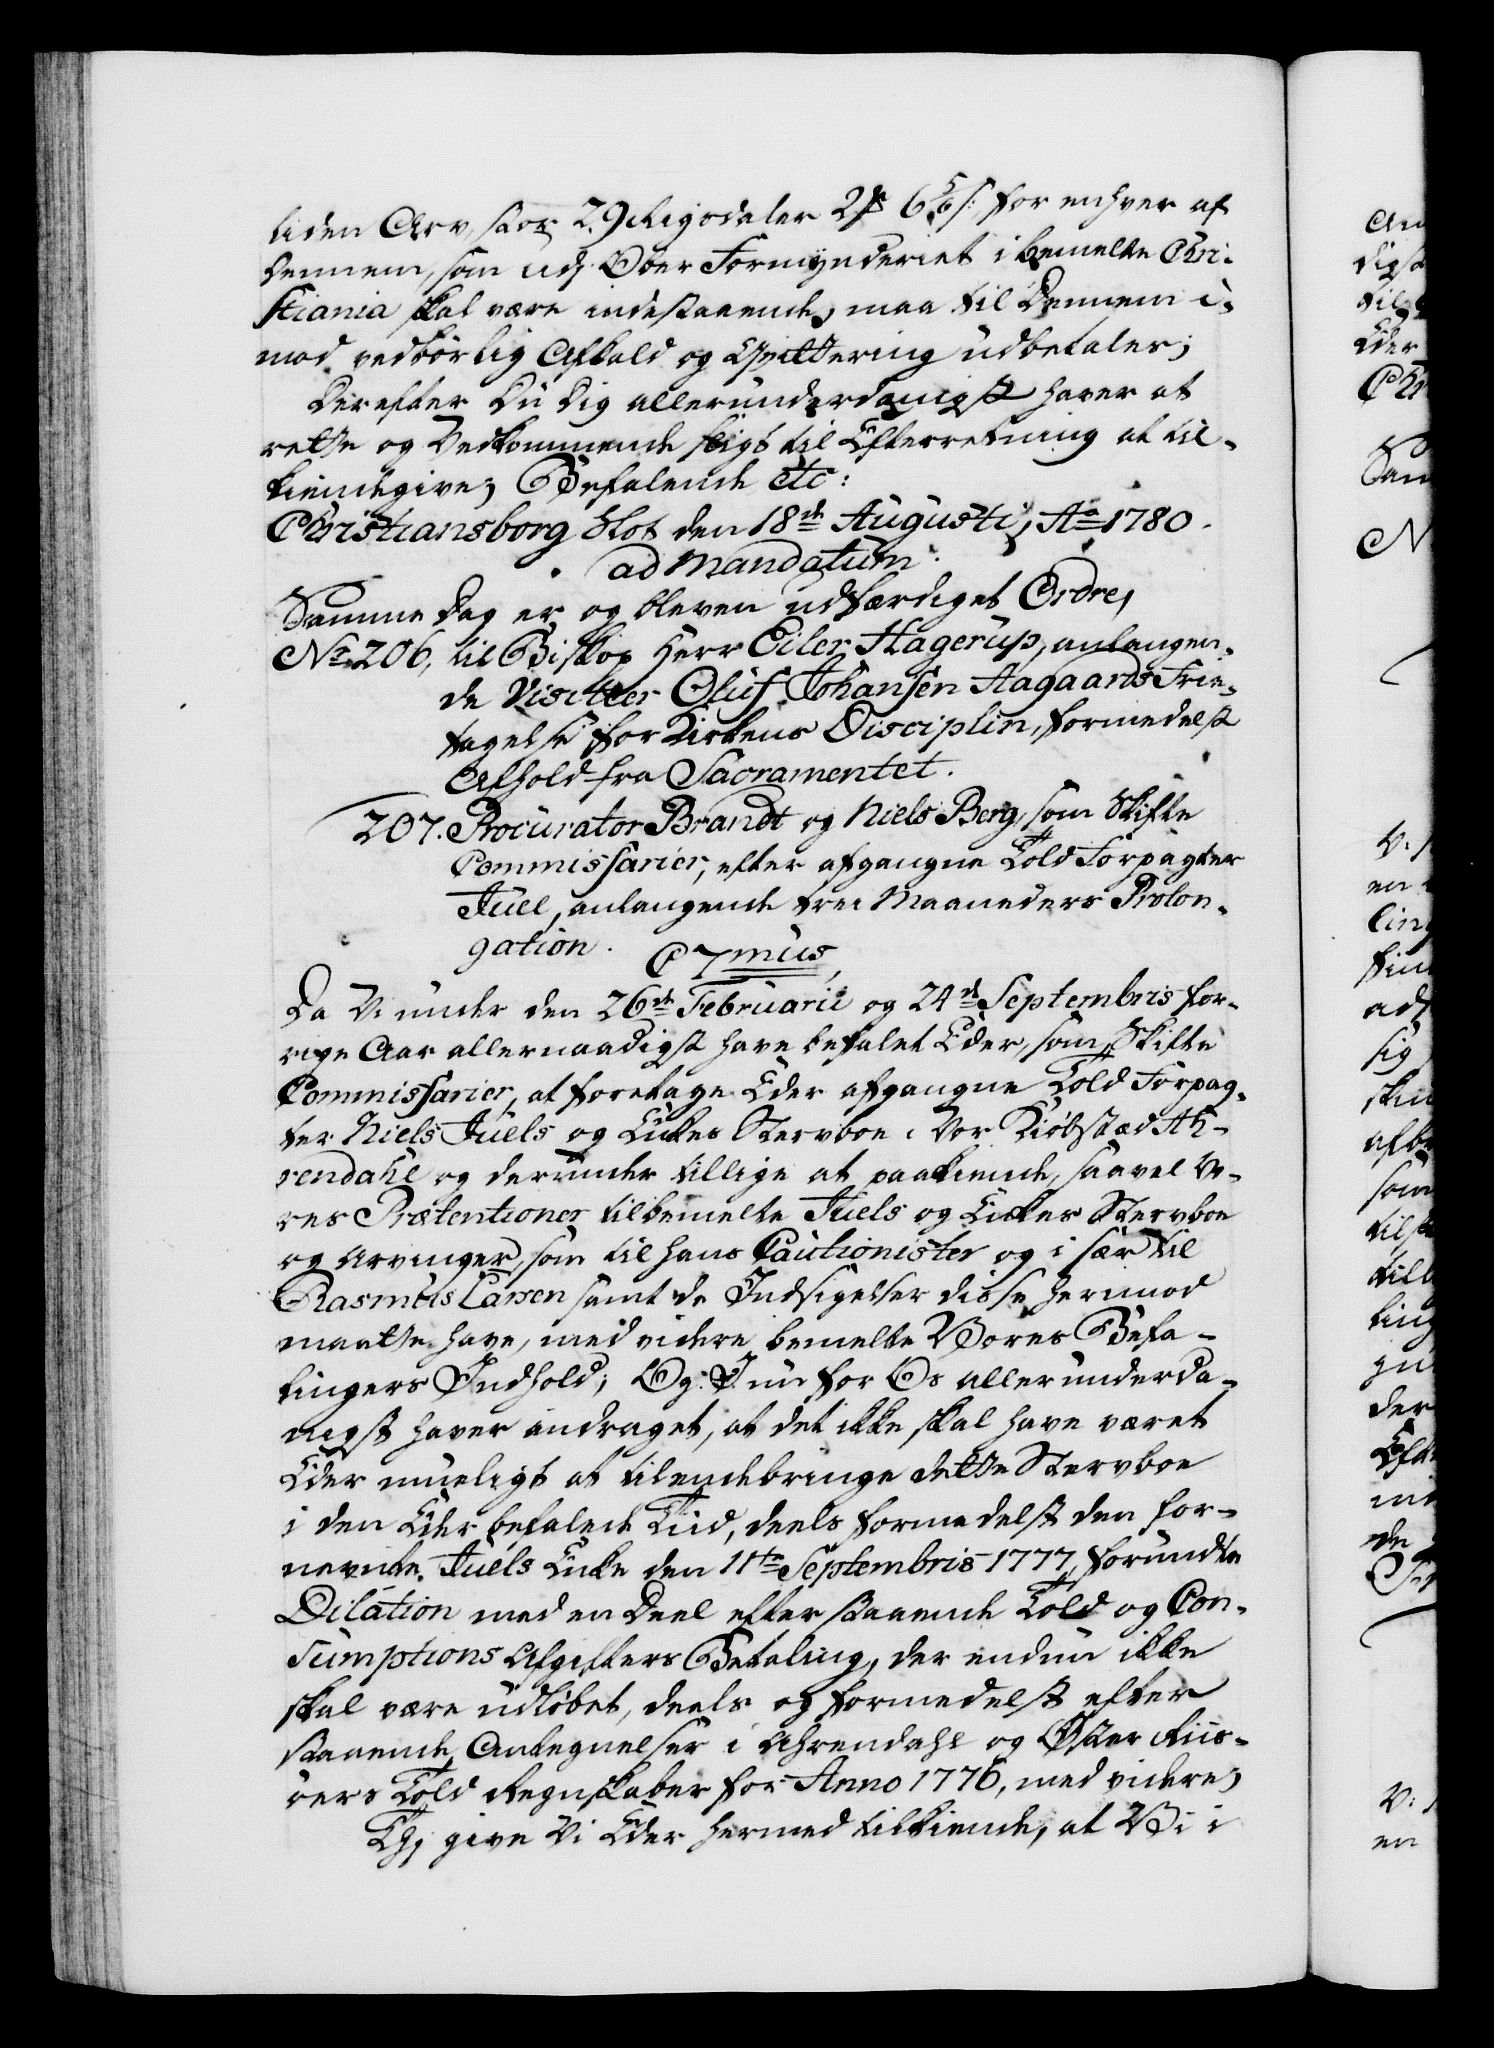 liden Arv, stor 29 Rigsdaler 2 ß 6 5/6 s: for enhver af
dennem, som udj Ober Formynderiet i bemelte Chri-
stiania skal være indestaaende, maa til Dennem i-
mod vedbørlig Afkald og Qvittering udbetales;
Derefter Du dig allerunderdanigst haver at
rette og Vedkommende sligt til Efterretning at til-
kiendegive; Befalende etc:
Christiansborg Slot den 18de Augusti, Ao 1780.
ad Mandatum:
Samme Dag er og bleven udfærdiget Ordre,
No 206, til Biskop Herr Eiler Hagerup, anlangen-
de Visiteer Oluf Johansen Aagaards Frie-
tagelse for Kirkens Disciplin, formedelst
Afhold fra Sacramentet.
207. Procurator Brandt og Niels Berg, som Skifte
Commissarier, efter afgangne Told Forpagter
Juel, anlangende tree Maaneders Prolon-
gation. C 7mus,
Da Vi under den 26de Februarii og 24de Septembris for-
rige Aar allernaadigst have befalet Eder, som Skifte
Commissarier, at foretage Eder afgangne Told Forpag-
ter Niels Juels og Enkes Stervboe i Vor Kiøbstæd Ah-
rendahl og derunder tillige at paakiende, saavel Vo-
res Prætentioner til bemelte Juels og Enkes Stervboe
og Arvinger, som til hans Cautionister og i sær til
Rasmus Larsen samt de Indsigelser disse herimod
maatte have, med videre bemelte Vores Befa-
linges Indhold; Og I nu for Os allerunderda-
nigst haver andraget, at det ikke skal have været
Eder mueligt at tilendebringe dette Stervboe
i den Eder befalede Tiid, deels formedelst den for-
nevnte Juels Enke den 11te Septembris 1777, forundte
Dilation med en Deel efterstaaende Told og Con-
sumptions Afgifters Betaling, der endnu ikke
skal være udløbet, deels og formedelst efter
staaende Antegnelser i Ahrendahl og Øster Riis-
øers Told Regnskaber for Anno 1776, med videre;
Thj give Vi Eder hermed tilkiende, at Vi i